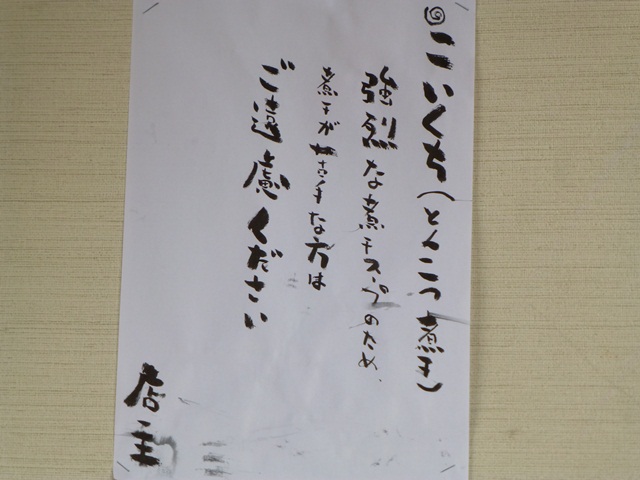 こいくち(とんこつ煮干)
強烈な煮干スープのため、
煮干が苦手な方は
ご遠慮ください
店主